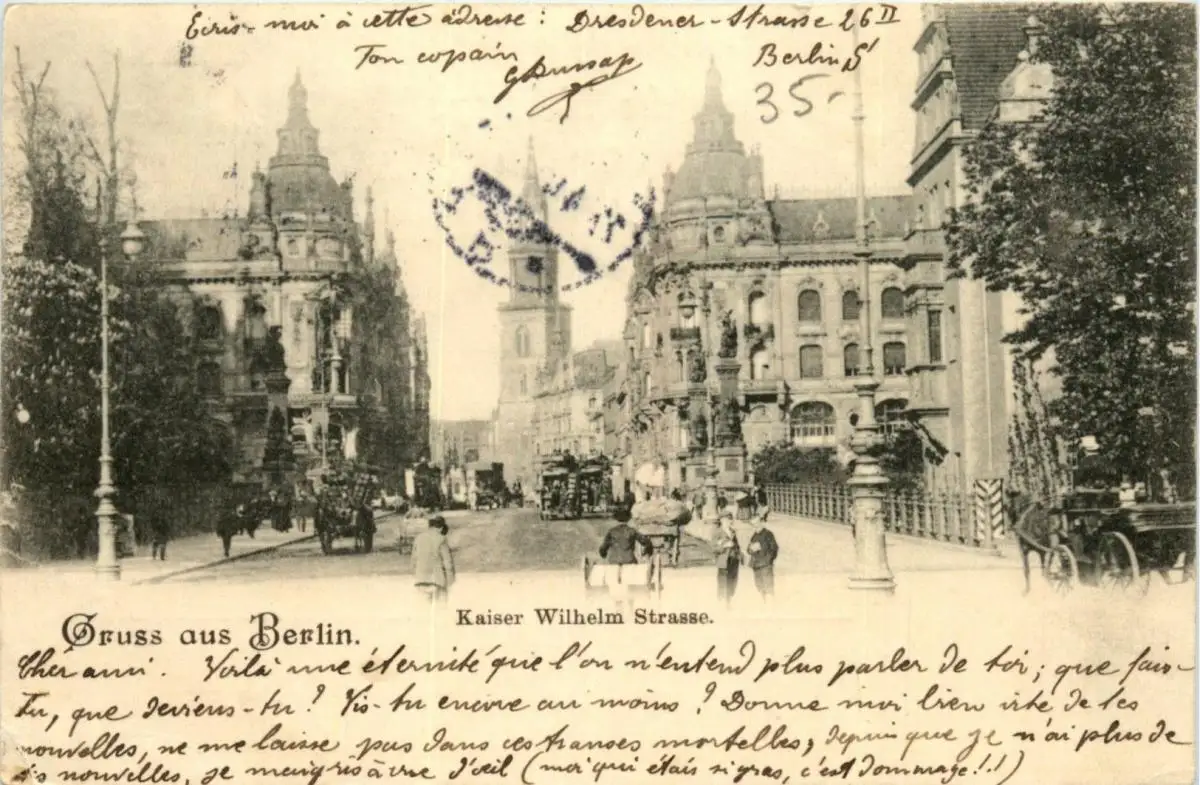 Ecris-moi à cette adresse : Dresdener-Strasse 26 II
Ton copain Berlin S
35-
Gruss aus Berlin.
Kaiser Wilhelm Strasse.
Cher ami. Voilà une éternité que l'on n'entend plus parler de toi; que fais-
Tu, que deviens-tu? Vis-tu encore au moins? Donne moi bien vite de tes
nouvelles, ne me laisse pas dans ces transes mortelles, depuis que je n'ai plus de
tes nouvelles, je maigris à vue d'œil (moi qui étais si gras, c'est dommage!!)